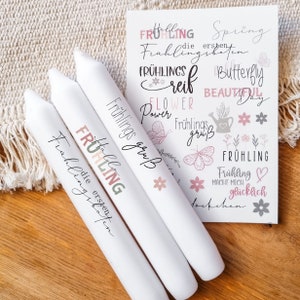 Hello
FRÜHLING
Spring
die ersten
Frühlingsboten
FRÜHLINGS
reif
Butterfly
FLOWER
Power
BEAUTIFUL
Day
Frühlings
gruß
FRÜHLING
Frühling
MACHT MICH
glücklich
Hello
FRÜHLING
die ersten
Frühlingsboten
Frühlings
gruß